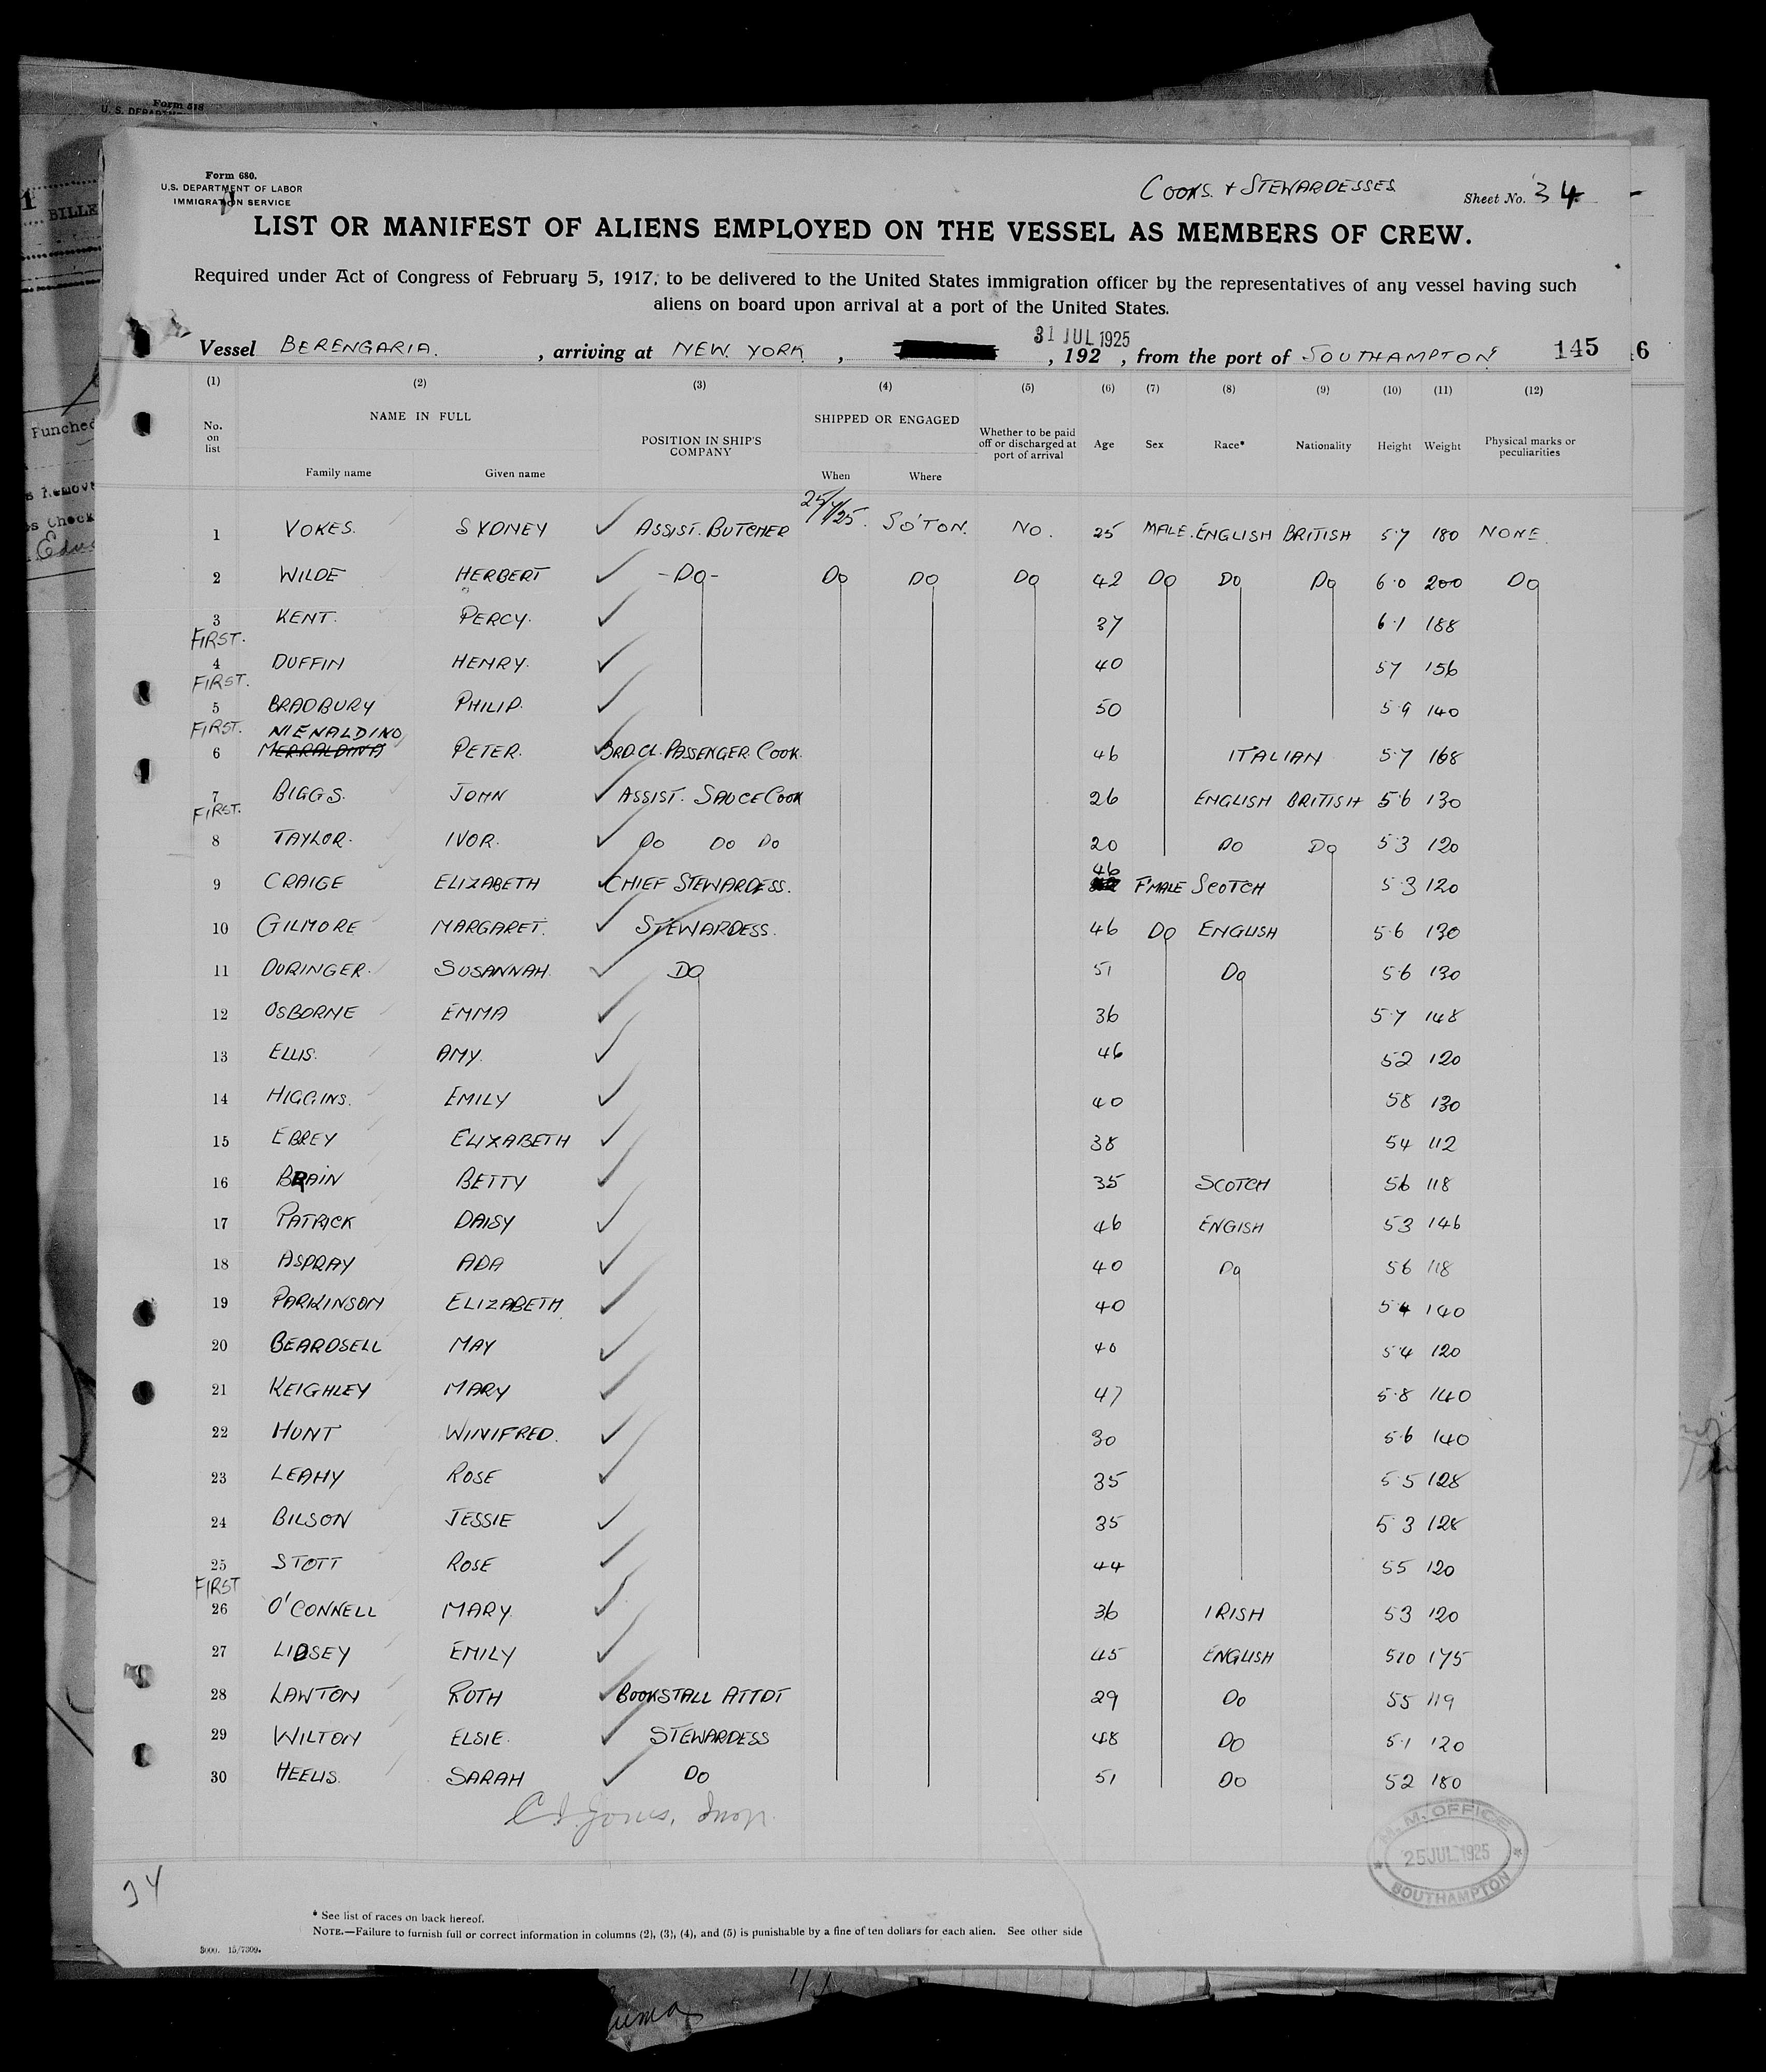 Form 518
U. S. DEPARTM
BILLE
Punched
s Remov
s Check
Form 680.
U.S. DEPARTMENT OF LABOR
IMMIGRATION SERVICE
COOKS. + STEWARDESSES
Sheet No. 34
LIST OR MANIFEST OF ALIENS EMPLOYED ON THE VESSEL AS MEMBERS OF CREW.
Required under Act of Congress of February 5, 1917, to be delivered to the United States immigration officer by the representatives of any vessel having such
aliens on board upon arrival at a port of the United States.
31 JUL 1925
Vessel BERENGARIA. , arriving at NEW YORK , , 192 , from the port of SOUTHAMPTON 145 6
(1) (2) (3) (4) (5) (6) (7) (8) (9) (10) (11) (12)
No. on list NAME IN FULL Family name Given name POSITION IN SHIP'S COMPANY SHIPPED OR ENGAGED When Where Whether to be paid off or discharged at port of arrival Age Sex Race* Nationality Height Weight Physical marks or peculiarities
1 VOKES. SYDNEY ✓ ASSIST. BUTCHER 25/7/25. SO'TON. NO. 25 MALE. ENGLISH BRITISH 5.7 180 NONE.
2 WILDE HERBERT ✓ -DO- DO DO DO 42 DO DO DO 6.0 200 DO
3 KENT. PERCY. ✓ 37 6.1 188
FIRST.
4 DUFFIN HENRY. ✓ 40 57 156
FIRST.
5 BRADBURY PHILIP. ✓ 50 5.9 140
FIRST. NIENALDINO
6 MERRALDINO PETER. ✓ 3RD.CL. PASSENGER COOK. 46 ITALIAN 5.7 168
7 BIGGS. JOHN ✓ ASSIST. SAUCE COOK 26 ENGLISH BRITISH 5.6 130
FIRST.
8 TAYLOR. IVOR. ✓ DO DO DO 20 DO DO 5.3 120
9 CRAIGE ELIZABETH ✓ CHIEF STEWARDESS. 46 F'MALE SCOTCH 5.3 120
10 GILMORE MARGARET. ✓ STEWARDESS. 46 DO ENGLISH 5.6 130
11 DURINGER. SUSANNAH. ✓ DO 51 DO 5.6 130
12 OSBORNE EMMA ✓ 36 5.7 148
13 ELLIS. AMY. ✓ 46 52 120
14 HIGGINS. EMILY ✓ 40 58 130
15 EBREY ELIXABETH ✓ 38 54 112
16 BRAIN BETTY ✓ 35 SCOTCH 56 118
17 PATRICK DAISY ✓ 46 ENGISH 53 146
18 ASPRAY ADA ✓ 40 DO 56 118
19 PARKINSON ELIZABETH ✓ 40 54 140
20 BEARDSELL MAY ✓ 40 5.4 120
21 KEIGHLEY MARY ✓ 47 5.8 140
22 HUNT WINIFRED. ✓ 30 5.6 140
23 LEAHY ROSE ✓ 35 5.5 128
24 BILSON JESSIE ✓ 35 5.3 128
25 STOTT ROSE ✓ 44 55 120
FIRST
26 O'CONNELL MARY. ✓ 36 IRISH 53 120
27 LIDSEY EMILY ✓ 45 ENGLISH 510 175
28 LAWTON RUTH ✓ BOOKSTALL ATTDT 29 DO 55 119
29 WILTON ELSIE. ✓ STEWARDESS 48 DO 5.1 120
30 HEELIS. SARAH ✓ DO 51 DO 52 180
Jones, Insp.
M. M. OFFICE
25 JUL 1925
SOUTHAMPTON
34
* See list of races on back hereof.
NOTE.—Failure to furnish full or correct information in columns (2), (3), (4), and (5) is punishable by a fine of ten dollars for each alien. See other side
5000. 15/7309.